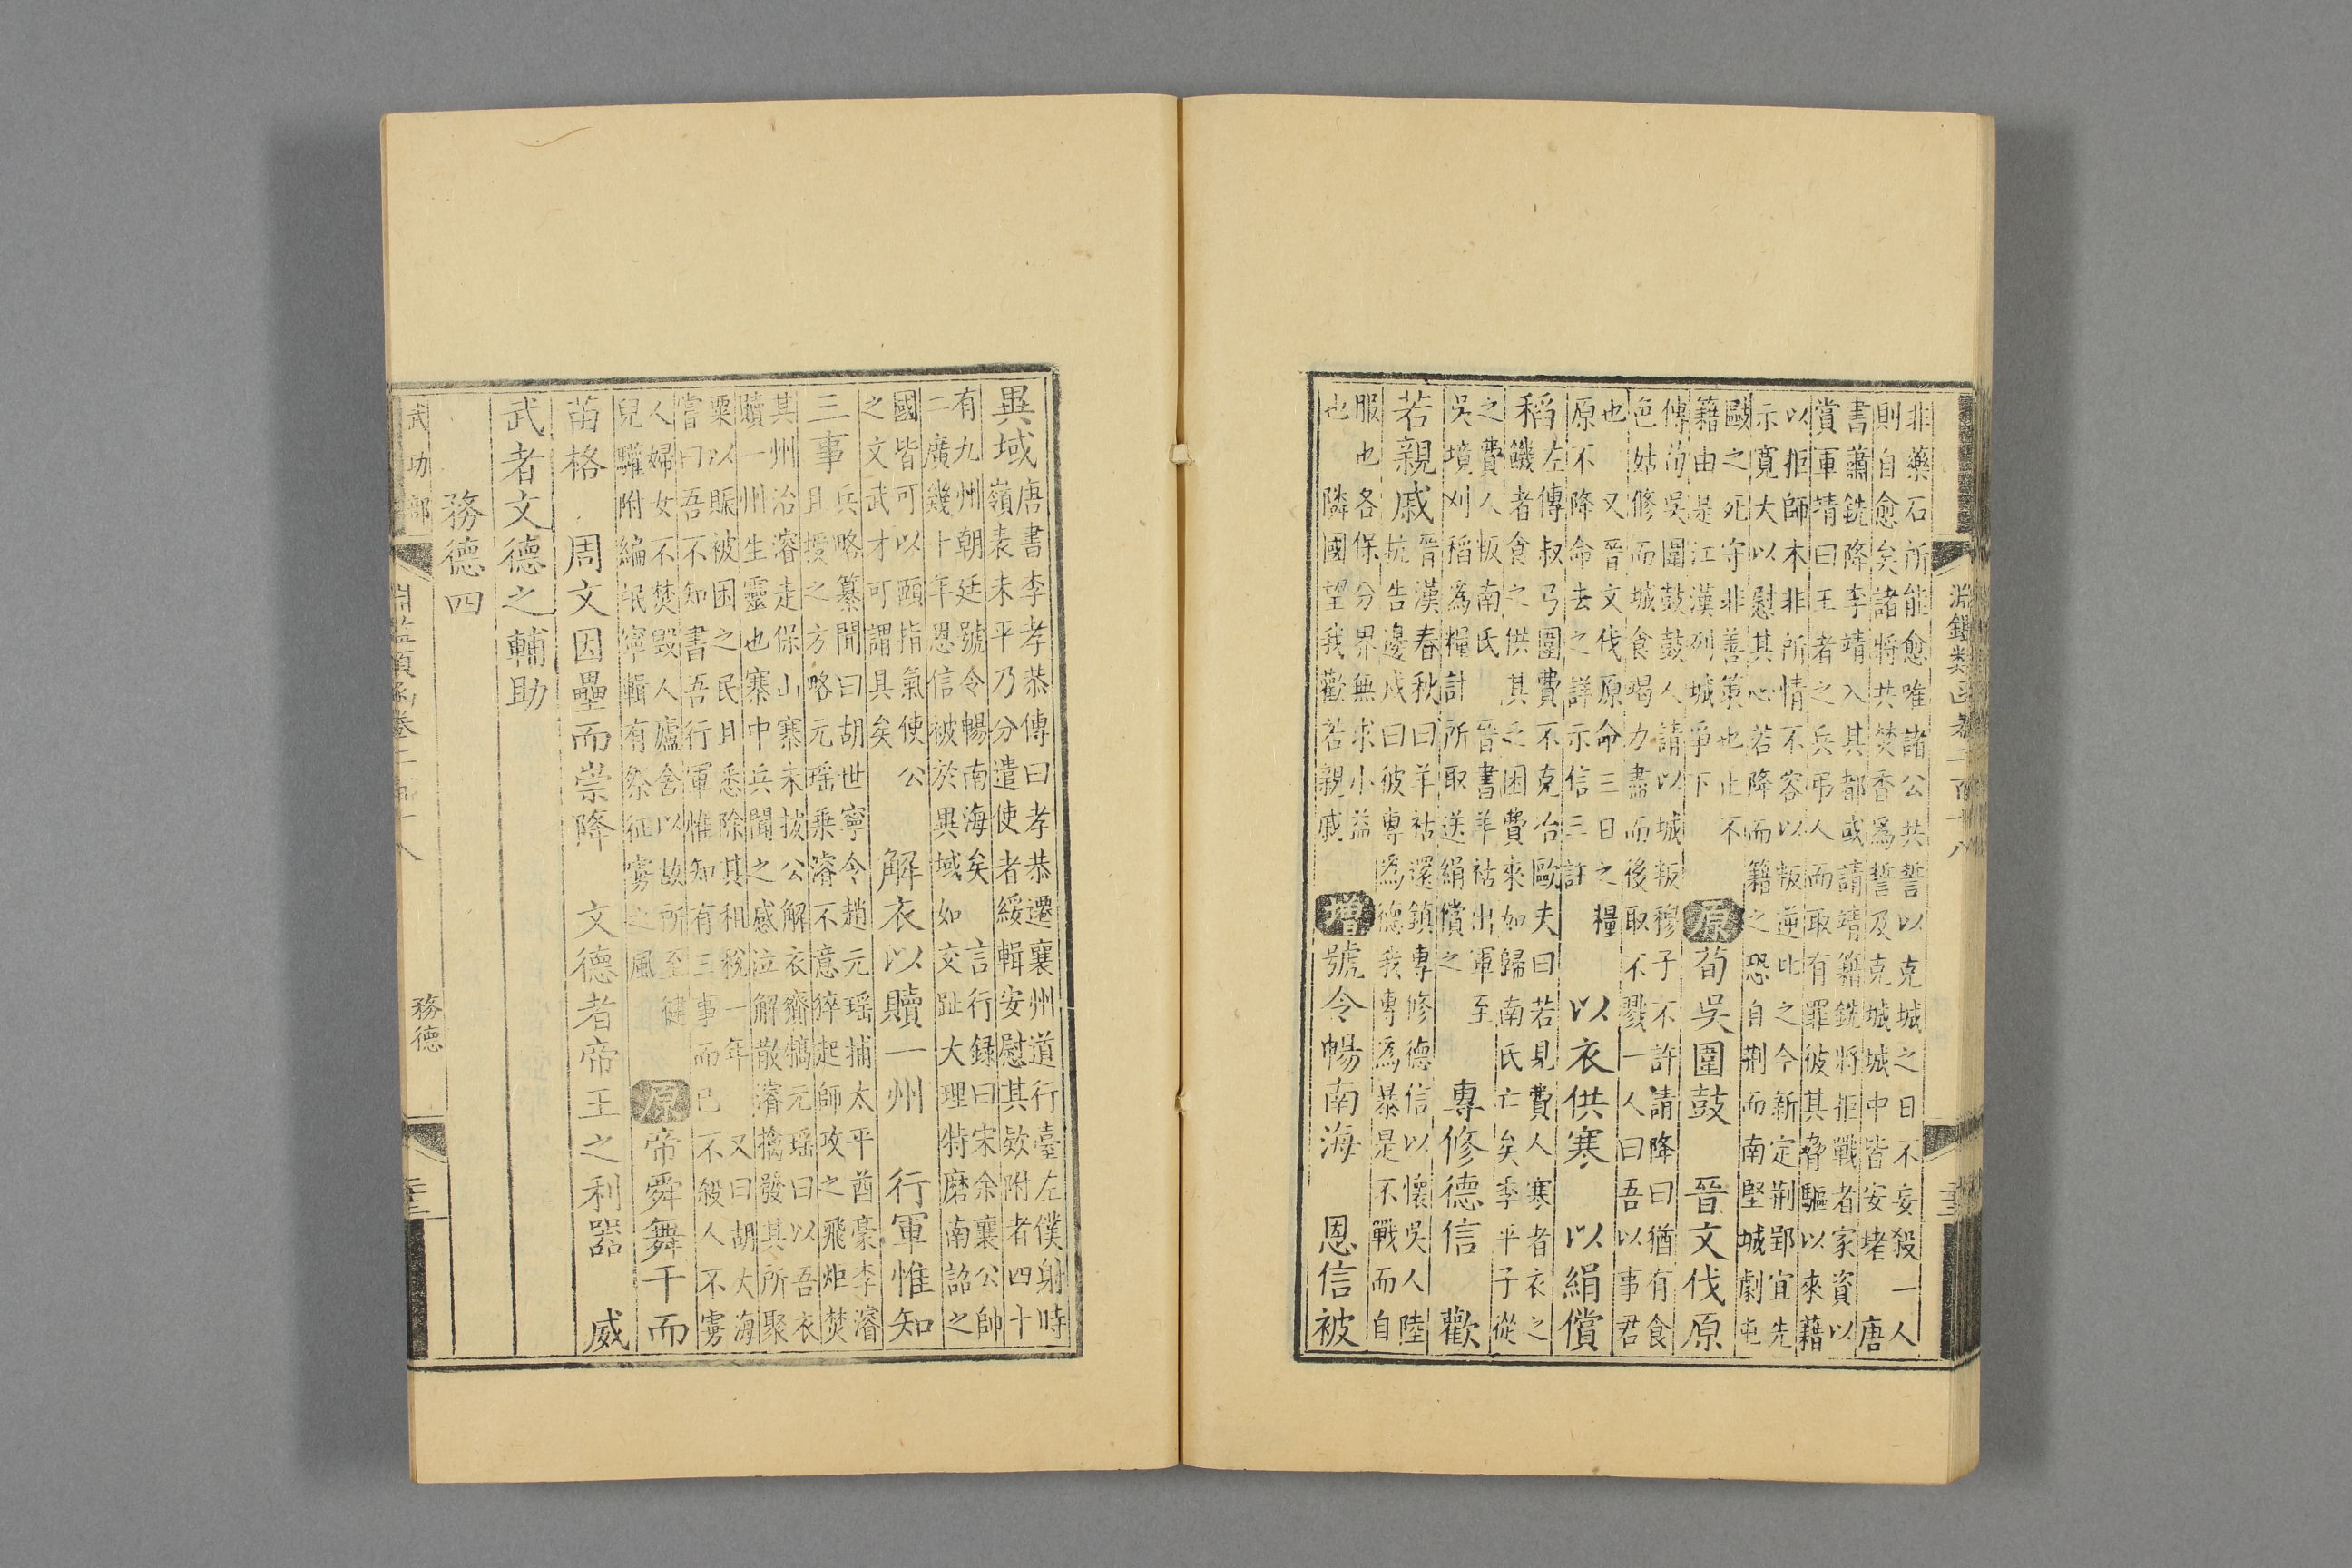 非藥石所能愈唯諸公共誓以克城之日不妄殺一人
則自愈矣諸將共焚香爲誓及克城城中皆安堵 唐
書蕭銑降李靖入其都或請靖籍銑將拒戰者家資以
賞軍靖曰王者之兵弔人而取有罪彼其脅驅以來藉
以拒師本非所情不容以叛逆比之今新定荆郢宜先
示寛大以慰其心若降而籍之恐自荆而南堅城劇屯
毆之死守非善策也止不
籍由是江漢列城爭下
原荀吳圍鼓 晉文伐原
傳荀吳圍鼓鼓人請以城叛穆子不許請降曰猶有食
色姑修而城食竭力盡而後取不戮一人曰吾以事君
也 又晉文伐原命三日之糧
原不降命去之詳示信三註
以衣供寒 以絹償
稻
左傳叔弓圍費不克冶歐夫曰若見費人寒者衣之
饑者食之供其乏困費來如歸南氏亡矣季平子從
之費人叛南氏 晉書羊祜出軍至
吳境刈稻爲糧計所取送絹償之
專修德信 歡
若親戚
晉漢春秋曰羊祜還鎮專修德信以懷吳人陸
抗告邊戍曰彼專爲德我專爲暴是不戰而自
服也各保分界無求小益
也 隣國望我歡若親戚
增號令暢南海 恩信被
淵鑑類函卷二百十八
異域
唐書李孝恭傳曰孝恭遷襄州道行臺左僕射時
嶺表未平乃分遣使者綏輯安慰其欵附者四十
有九州朝廷號令暢南海矣 言行録曰宋余襄公帥
二廣幾十年恩信被於異域如交趾大理特磨南詔之
國皆可以頤指氣使公
之文武才可謂具矣
解衣以贖一州 行軍惟知
三事
兵略纂聞曰胡世寧令趙元瑶捕太平酋豪李濬
且授之方略元瑶乘濬不意猝起師攻之飛炬焚
其州治濬走保山寨未拔公解衣齎犒元瑶曰以吾衣
贖一州生靈也寨中兵聞之感泣解散濬擒發其所聚
粟以賑被困之民且悉除其租稅一年 又曰胡大海
嘗曰吾不知書吾行軍惟知有三事而已不殺人不虜
人婦女不焚毁人廬舍以故所至健
兒驩附編氓寧輯有祭征虜之風
原帝舜舞干而
苗格 周文因壘而崇降 文德者帝王之利器 威
武者文德之輔助
務德四
武功部
淵鑑類函卷二百十八
務德